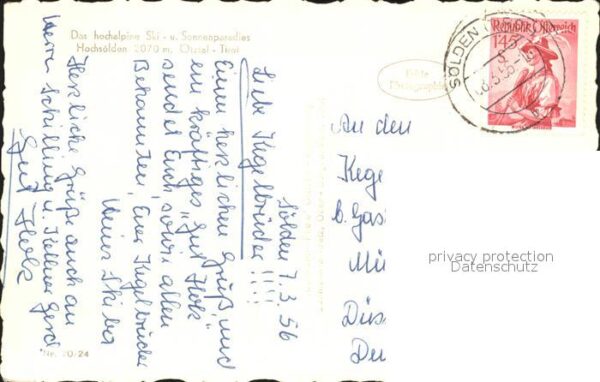 Das hochalpine Ski - u. Sonnenparadies
Hochsölden 2070 m, Ötztal - Tirol
Sölden 7.3.56
Liebe Kegelbrüder !!!!
Einen herzlichen Gruß, und
ein kräftiges „Gut Holz"
sendet Euch, sowie allen
Bekannten, Euer Kegelbruder
Heinz
Herzliche Grüße auch an
Herrn Schilling u. Kellner Gerd.
Gut Holz
Nr. 20/24
Echte
Photographie
SÖLDEN
Republik Österreich
1 45
S
An den
Kege
b. Gas
Mü
Düs
Deu
privacy protection
Datenschutz